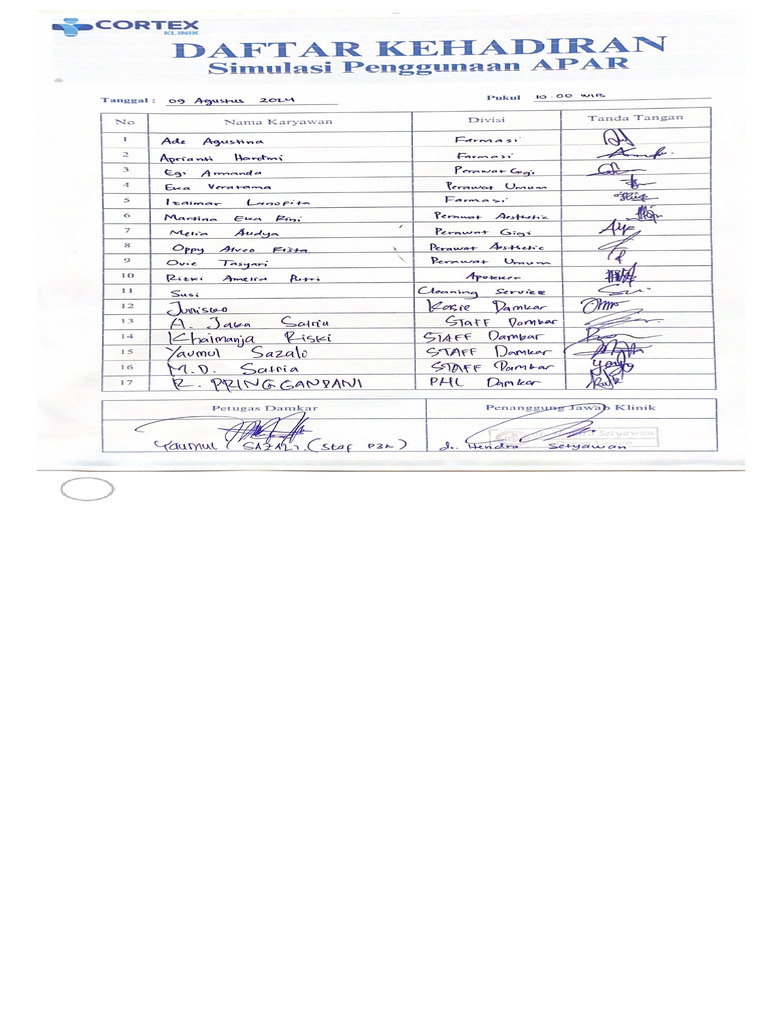 CORTEX
KLINIK
DAFTAR KEHADIRAN
Simulasi Penggunaan APAR
Tanggal : 09 Agustus 2024 Pukul 10.00 WIB
No Nama Karyawan Divisi Tanda Tangan
1 Ade Agustina Farmasi
2 Aprianti Farmasi
3 Egi Armanda Perawat Gigi
4 Eka Veratama Perawat Umum
5 Farmasi
6 Martina Eka Rini Perawat Aesthetic
7 Melia Audya Perawat Gigi
8 Oppy Perawat Aesthetic
9 Ovie Tasyari Perawat Umum
10 Rizki Amelia Putri Apoteker
11 Susi Cleaning Service
12 Damkar
13 A. Jaka Satria STAFF Damkar
14 Riski STAFF Damkar
15 Yaumul Sazali STAFF Damkar
16 M.D. Satria STAFF Damkar
17 R. PRINGGANDANI PHL Damkar
Petugas Damkar Penanggung Jawab Klinik
Yaumul SAZALI (Staf P3K) dr. Hendra Setyawan